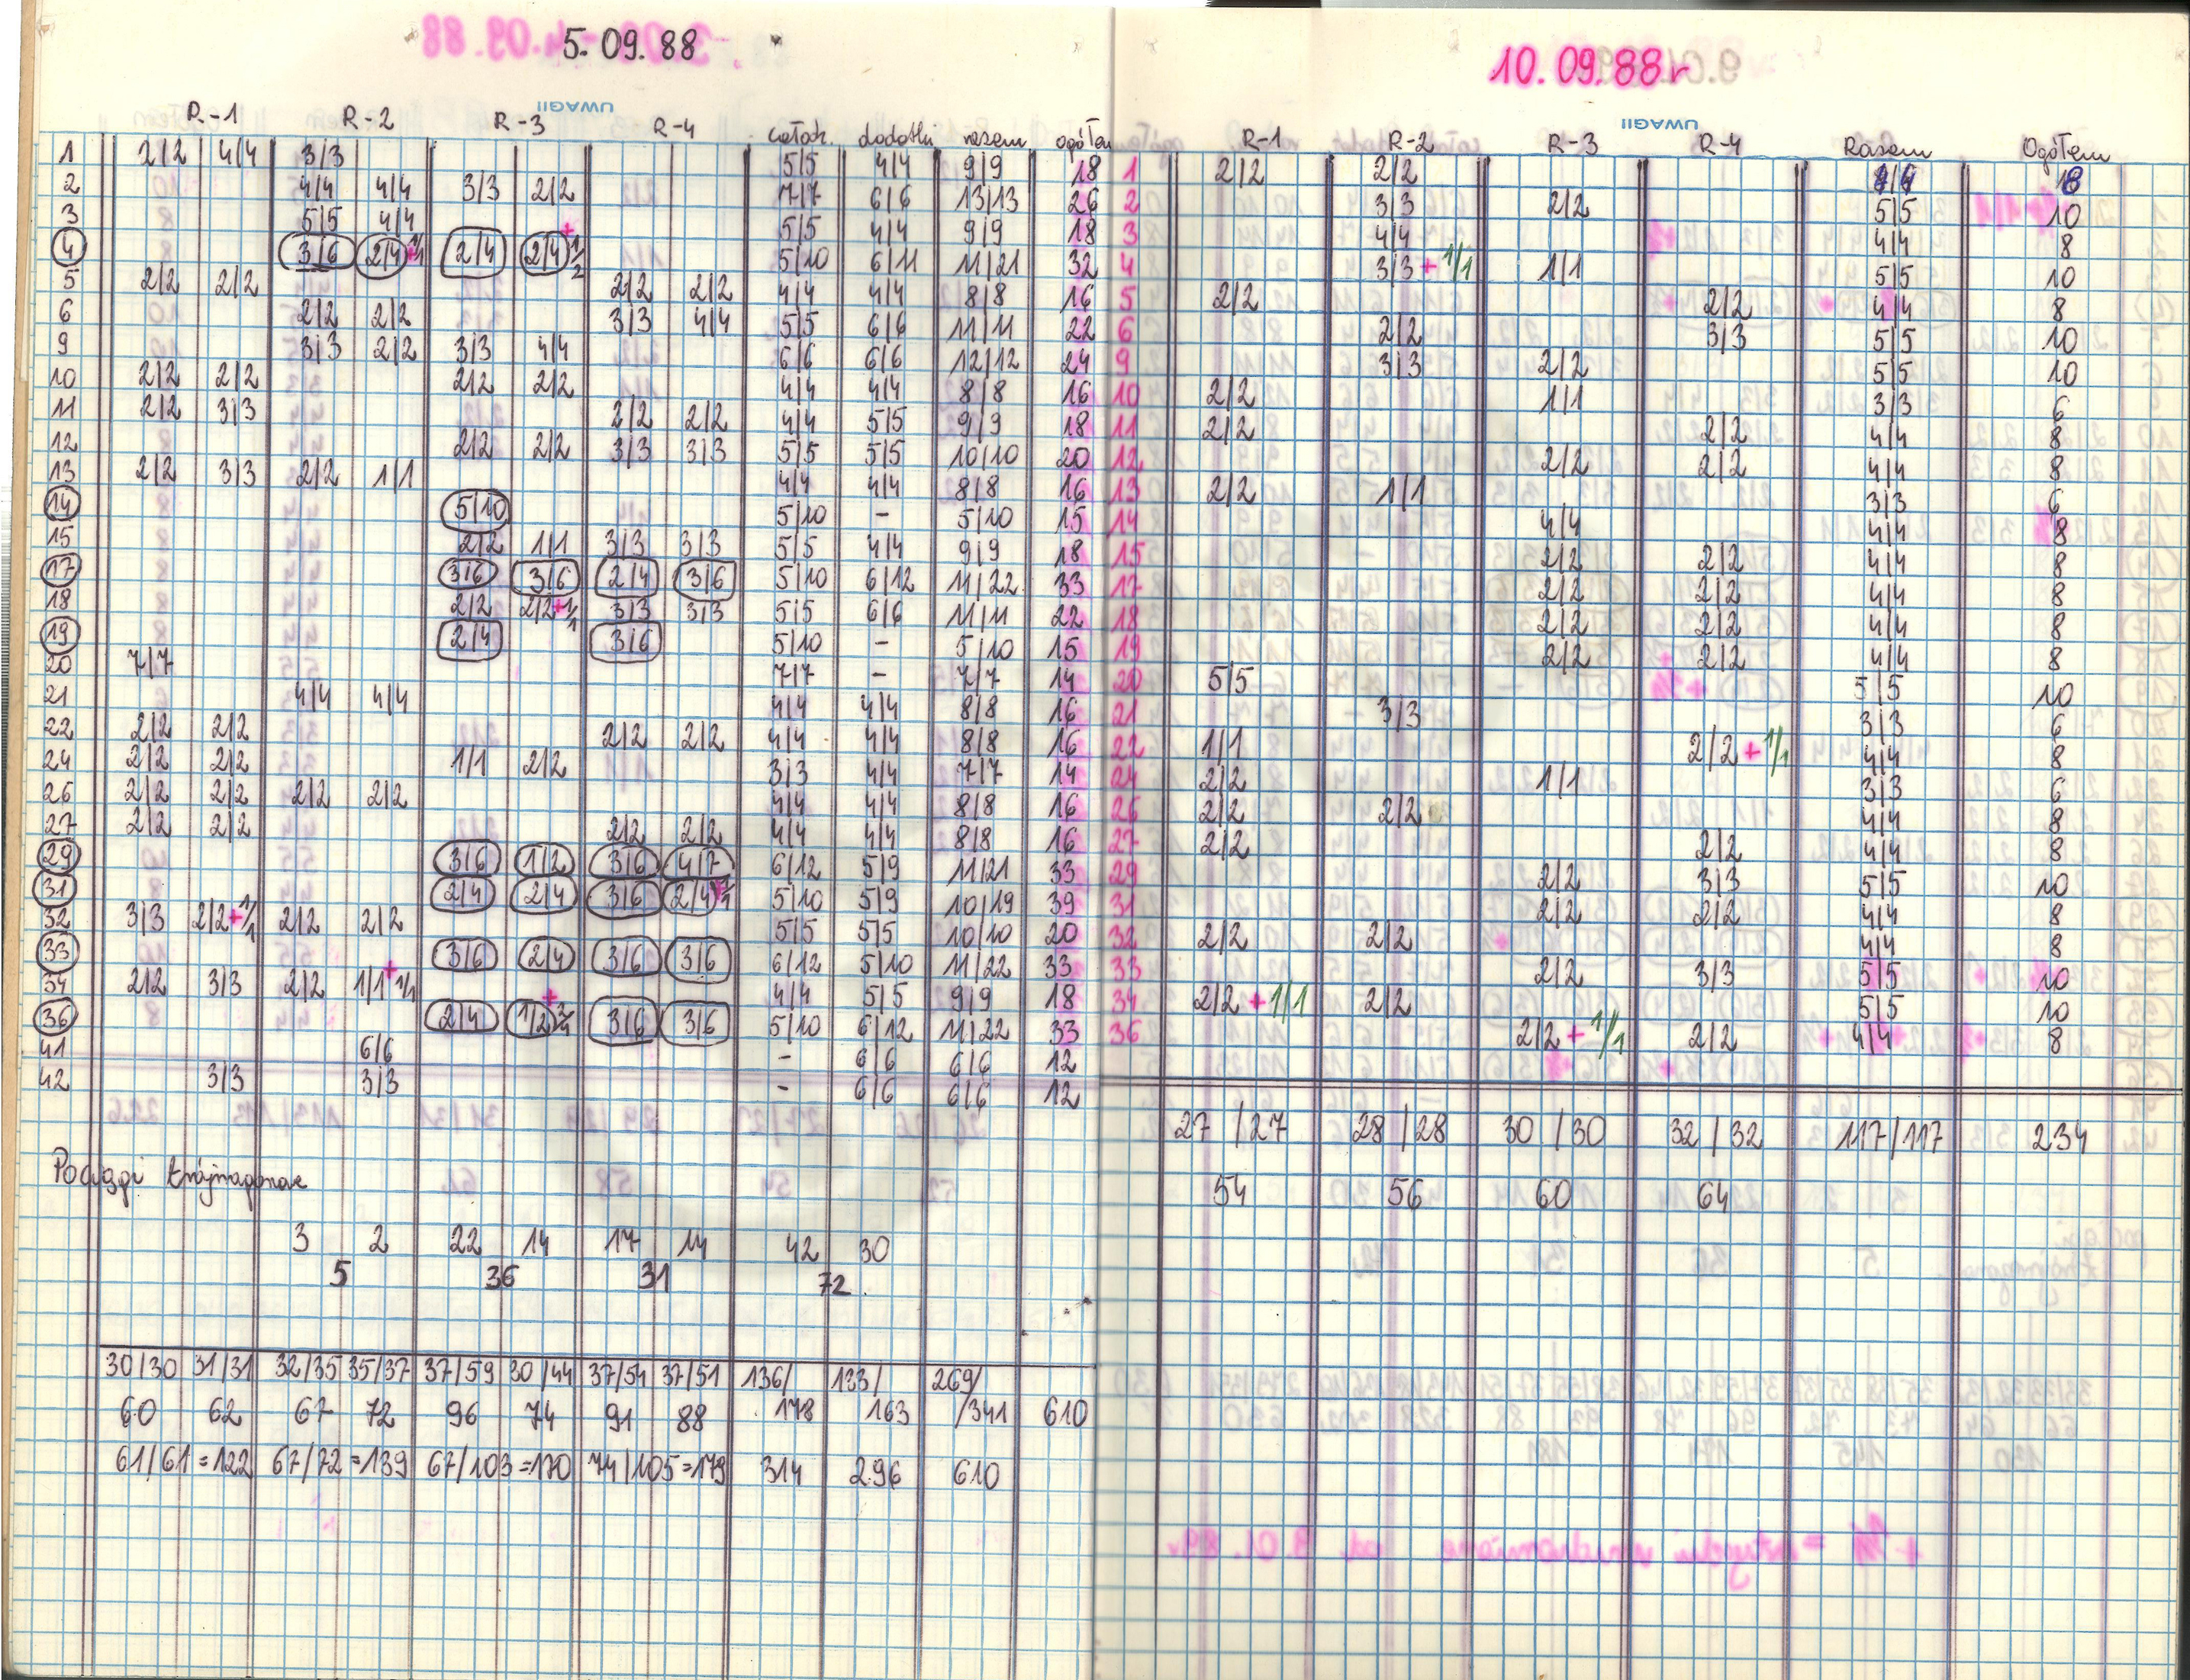 5.09.88
UWAGI
R-1 R-2 R-3 R-4 całodz. dodatki razem ogółem
1 2|2 4|4 3|3 5|5 4|4 9|9 18
2 4|4 4|4 3|3 2|2 7|7 6|6 13|13 26
3 5|5 4|4 5|5 4|4 9|9 18
4 3|6 2|4 +1/1 2|4 2|4 +1/2 5|10 6|11 11|21 32
5 2|2 2|2 2|2 2|2 4|4 4|4 8|8 16
6 2|2 2|2 3|3 4|4 5|5 6|6 11|11 22
9 3|3 2|2 3|3 4|4 6|6 6|6 12|12 24
10 2|2 2|2 2|2 2|2 4|4 4|4 8|8 16
11 2|2 3|3 2|2 2|2 4|4 5|5 9|9 18
12 2|2 2|2 3|3 3|3 5|5 5|5 10|10 20
13 2|2 3|3 2|2 1|1 4|4 4|4 8|8 16
14 5|10 5|10 - 5|10 15
15 2|2 1|1 3|3 3|3 5|5 4|4 9|9 18
17 3|6 3|6 2|4 3|6 5|10 6|12 11|22 33
18 2|2 2|2+1/1 3|3 3|3 5|5 6|6 11|11 22
19 2|4 3|6 5|10 - 5|10 15
20 7|7 7|7 - 7|7 14
21 4|4 4|4 4|4 4|4 8|8 16
22 2|2 2|2 2|2 2|2 4|4 4|4 8|8 16
24 2|2 2|2 1|1 2|2 3|3 4|4 7|7 14
26 2|2 2|2 2|2 2|2 4|4 4|4 8|8 16
27 2|2 2|2 2|2 2|2 4|4 4|4 8|8 16
29 3|6 1|2 3|6 4|7 6|12 5|9 11|21 33
31 2|4 2|4 3|6 2|4 5|10 5|9 10|19 39
32 3|3 2|2+1/1 2|2 2|2 5|5 5|5 10|10 20
33 3|6 2|4 3|6 3|6 6|12 5|10 11|22 33
34 2|2 3|3 2|2 1|1+1/1 4|4 5|5 9|9 18
36 2|4 1|2 + 3|6 3|6 5|10 6|12 11|22 33
41 6|6 - 6|6 6|6 12
42 3|3 3|3 - 6|6 6|6 12
Pociągi trójwagonowe
3 2 22 14 17 14 42 30
5 36 31 72
30/30 31/31 32/35 35/37 37/59 30/44 37/54 37/51 136/ 133/ 269/
60 62 67 72 96 74 91 88 178 163 /341 610
61/61=122 67/72=139 67/103=170 74/105=179 314 296 610
10.09.88r
UWAGI
R-1 R-2 R-3 R-4 Razem Ogółem
1 2|2 2|2 4|4 8
2 3|3 2|2 5|5 10
3 4|4 4|4 8
4 3|3+1/1 1|1 5|5 10
5 2|2 2|2 4|4 8
6 2|2 3|3 5|5 10
9 3|3 2|2 5|5 10
10 2|2 1|1 3|3 6
11 2|2 2|2 4|4 8
12 2|2 2|2 4|4 8
13 2|2 1|1 3|3 6
14 4|4 4|4 8
15 2|2 2|2 4|4 8
17 2|2 2|2 4|4 8
18 2|2 2|2 4|4 8
19 2|2 2|2 4|4 8
20 5|5 5|5 10
21 3|3 3|3 6
22 1|1 2|2+1/1 4|4 8
24 2|2 1|1 3|3 6
26 2|2 2|2 4|4 8
27 2|2 2|2 4|4 8
29 2|2 3|3 5|5 10
31 2|2 2|2 4|4 8
32 2|2 2|2 4|4 8
33 2|2 3|3 5|5 10
34 2|2+1/1 2|2 5|5 10
36 2|2+1/1 2|2 4|4 8
27/27 28/28 30/30 32/32 117/117 234
54 56 60 64